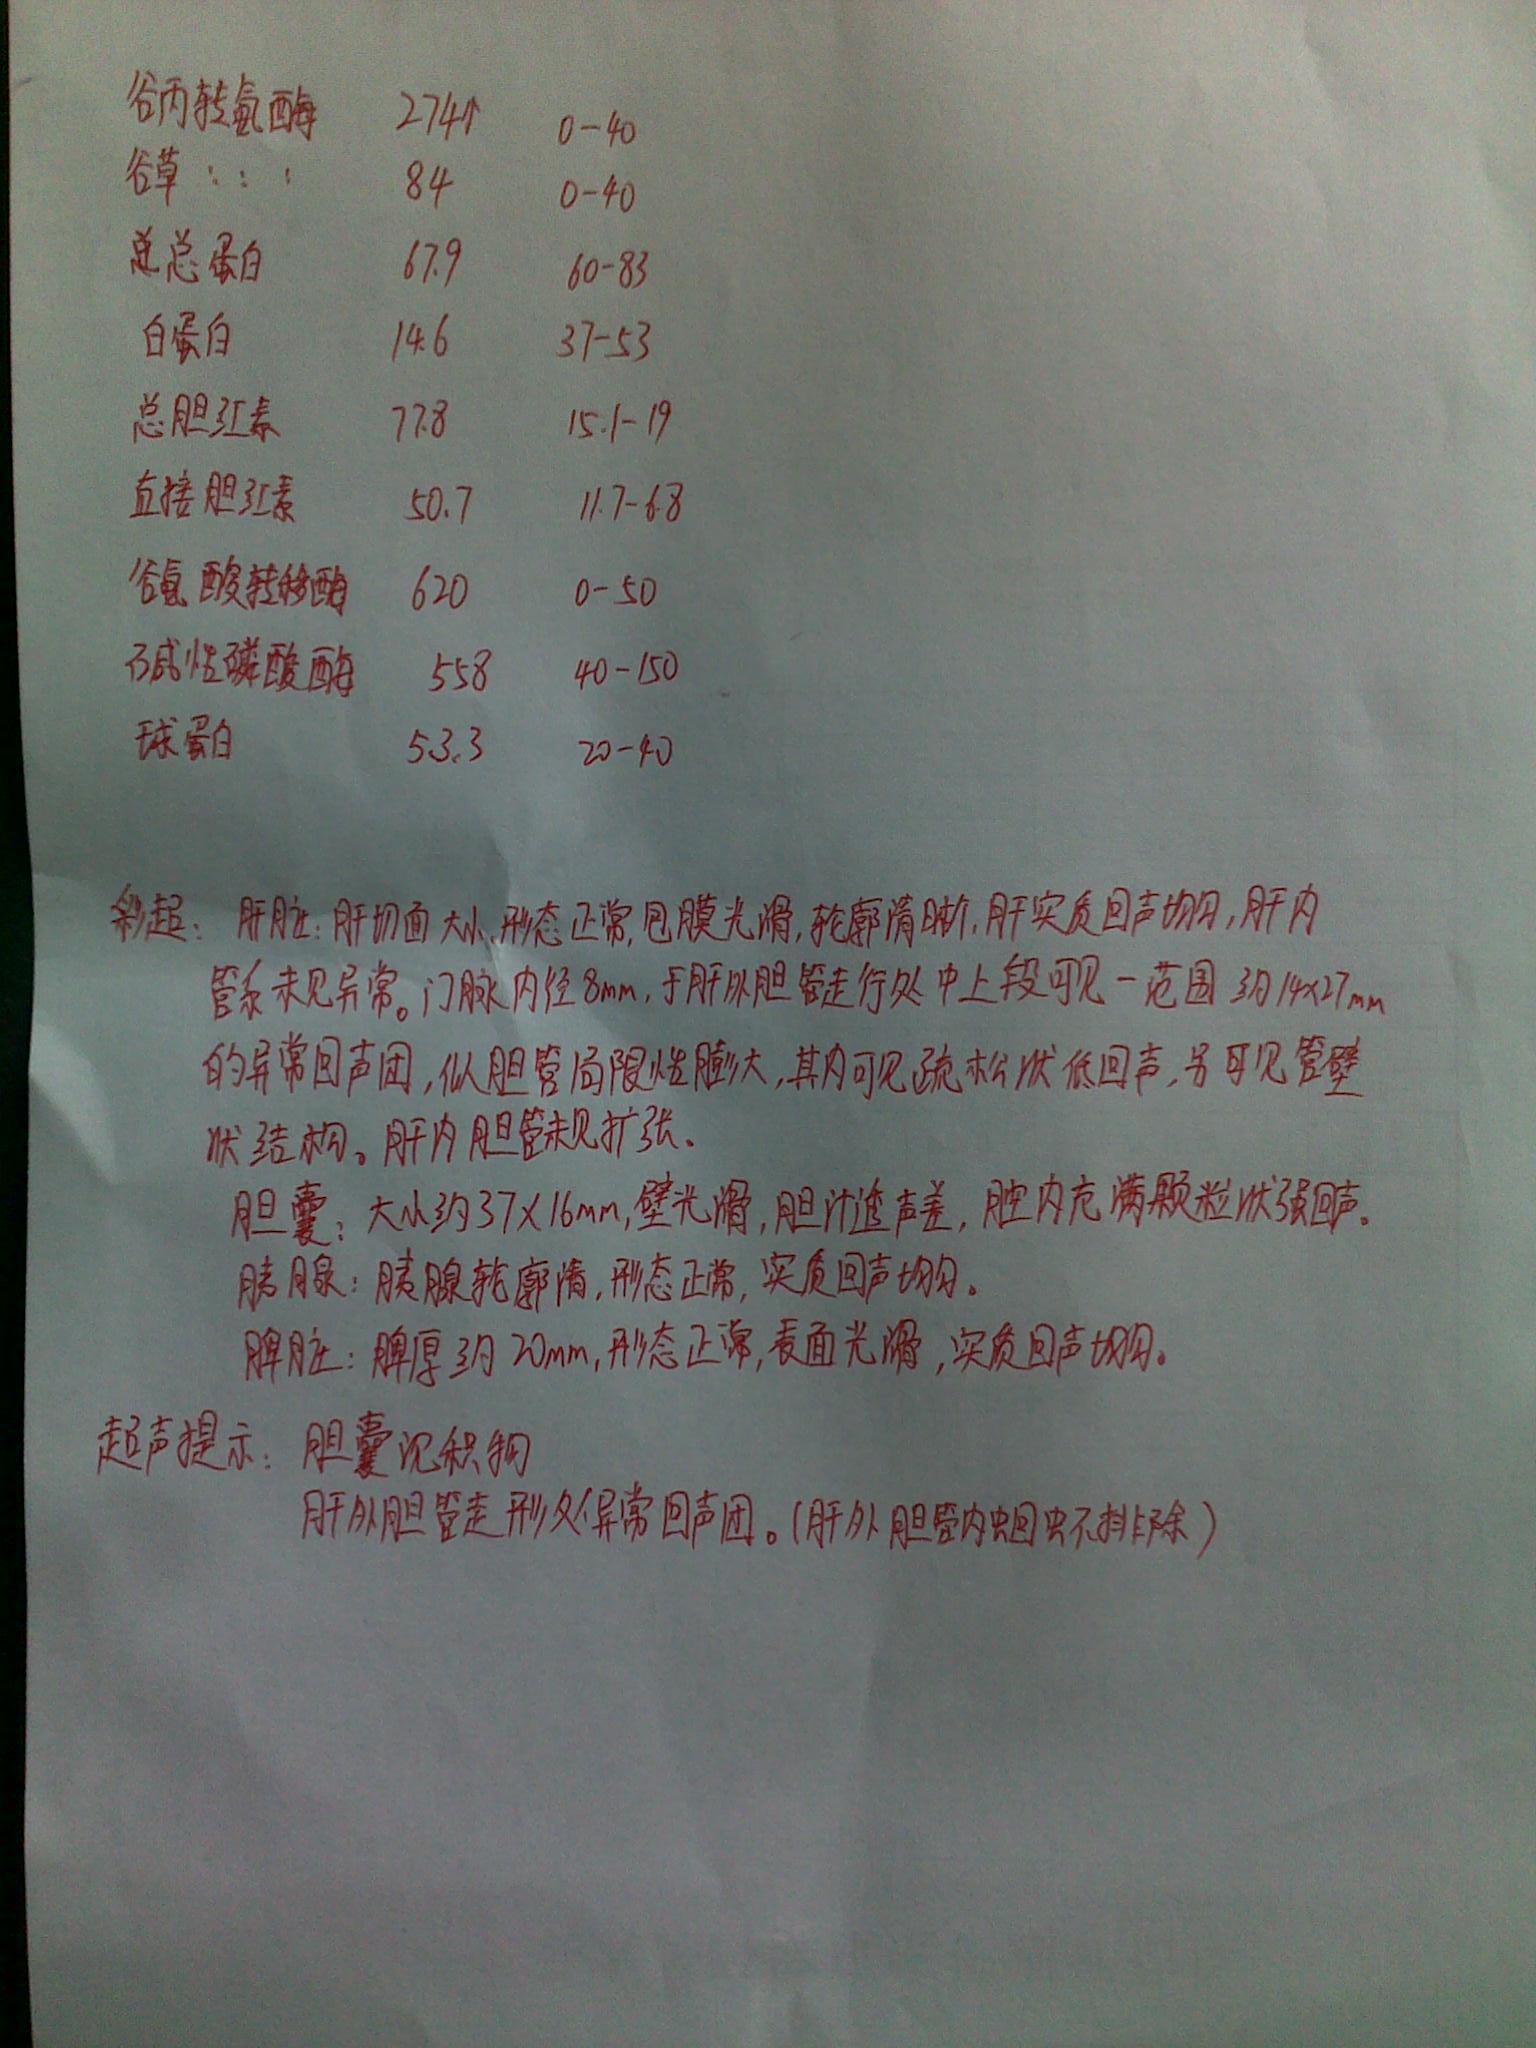 谷丙转氨酶 274↑ 0-40
谷草 : : : 84 0-40
总总蛋白 67.9 60-83
白蛋白 14.6 37-53
总胆红素 77.8 15.1-19
直接胆红素 50.7 11.7-6.8
谷氨酸转移酶 620 0-50
碱性磷酸酶 558 40-150
球蛋白 53.3 20-40
彩超: 肝脏: 肝切面大小、形态正常, 包膜光滑, 轮廓清晰, 肝实质回声均匀, 肝内
管系未见异常。门脉内径8mm, 于肝外胆管走行处中上段可见一范围约14x27mm
的异常回声团, 似胆管局限性膨大, 其内可见疏松状低回声, 另可见管壁
状结构。肝内胆管未见扩张.
胆囊: 大小约37X16mm, 壁光滑, 胆汁透声差, 腔内充满颗粒状强回声。
胰腺: 胰腺轮廓清, 形态正常, 实质回声均匀。
脾脏: 脾厚约20mm, 形态正常, 表面光滑, 实质回声均匀。
超声提示: 胆囊沉积物
肝外胆管走形处异常回声团。(肝外胆管内蛔虫不排除)